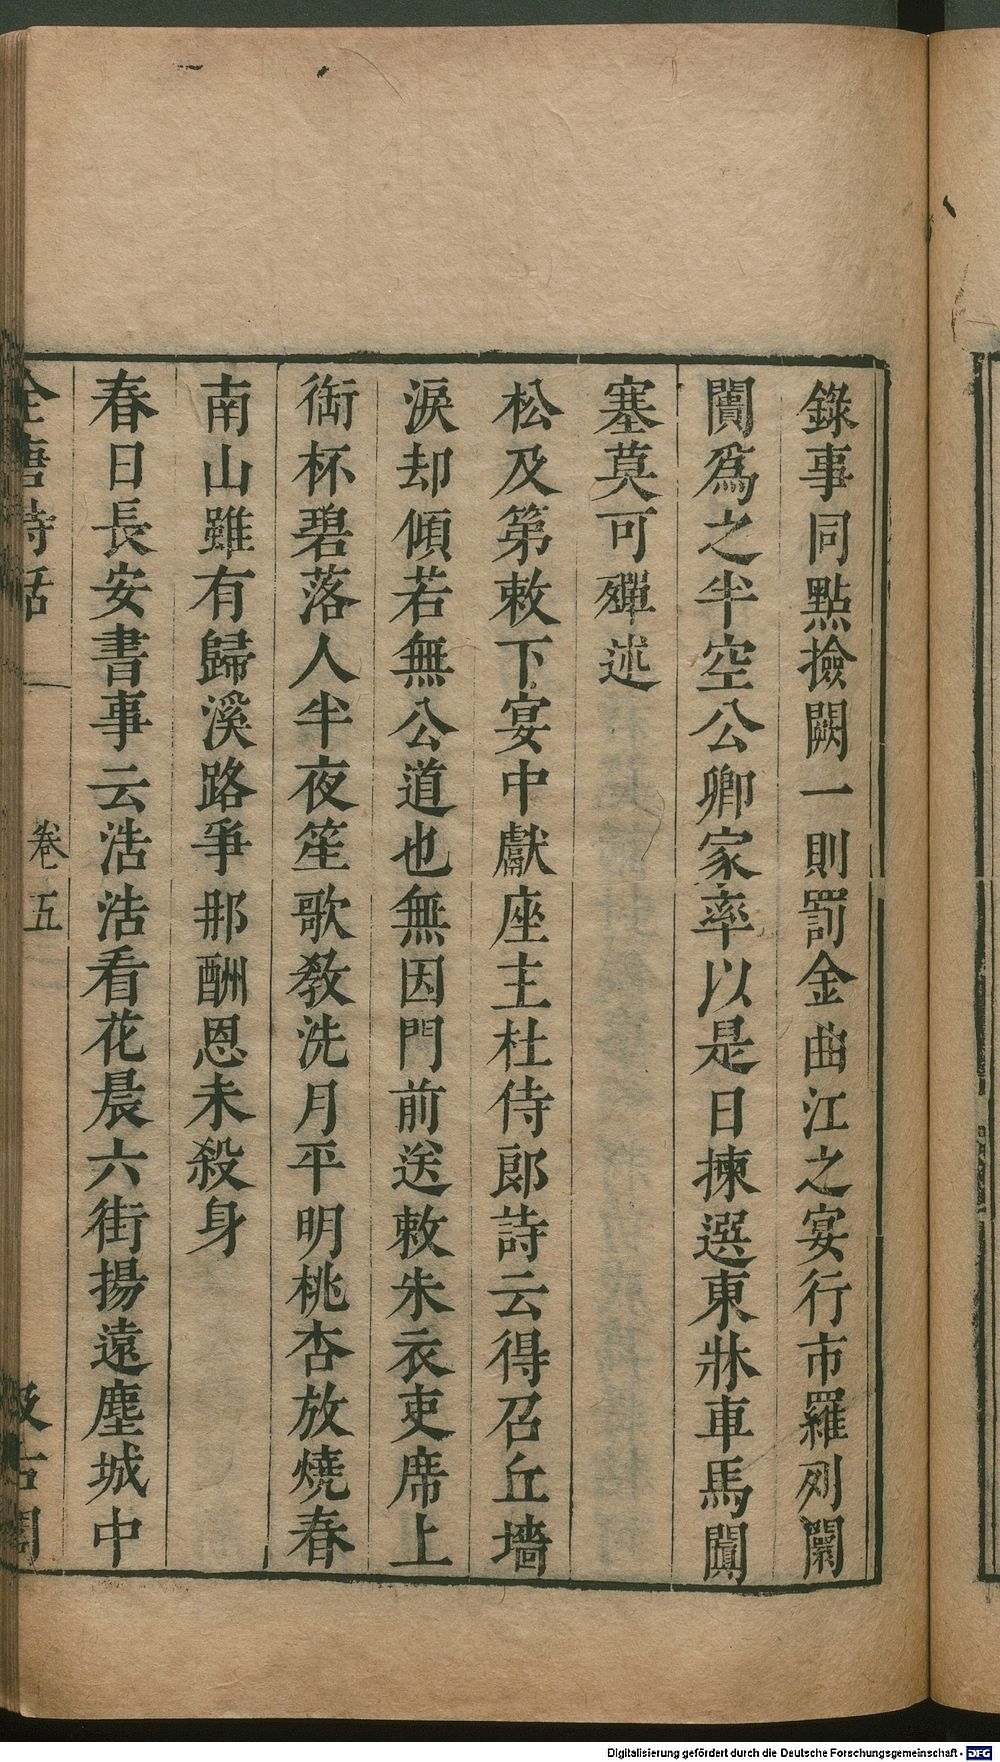 錄事同點撿闕一則罰金曲江之宴行市羅列闤
闠爲之半空公卿家率以是日揀選東牀車馬闐
塞莫可殫述
松及第敕下宴中獻座主杜侍郎詩云得召丘墻
淚却傾若無公道也無因門前送敕朱衣吏席上
銜杯碧落人半夜笙歌教洗月平明桃杏放燒春
南山雖有歸溪路爭那酬恩未殺身
春日長安書事云浩浩看花晨六街揚遠塵城中
全唐詩話 卷五 汲古閣
Digitalisierung gefördert durch die Deutsche Forschungsgemeinschaft - DFG